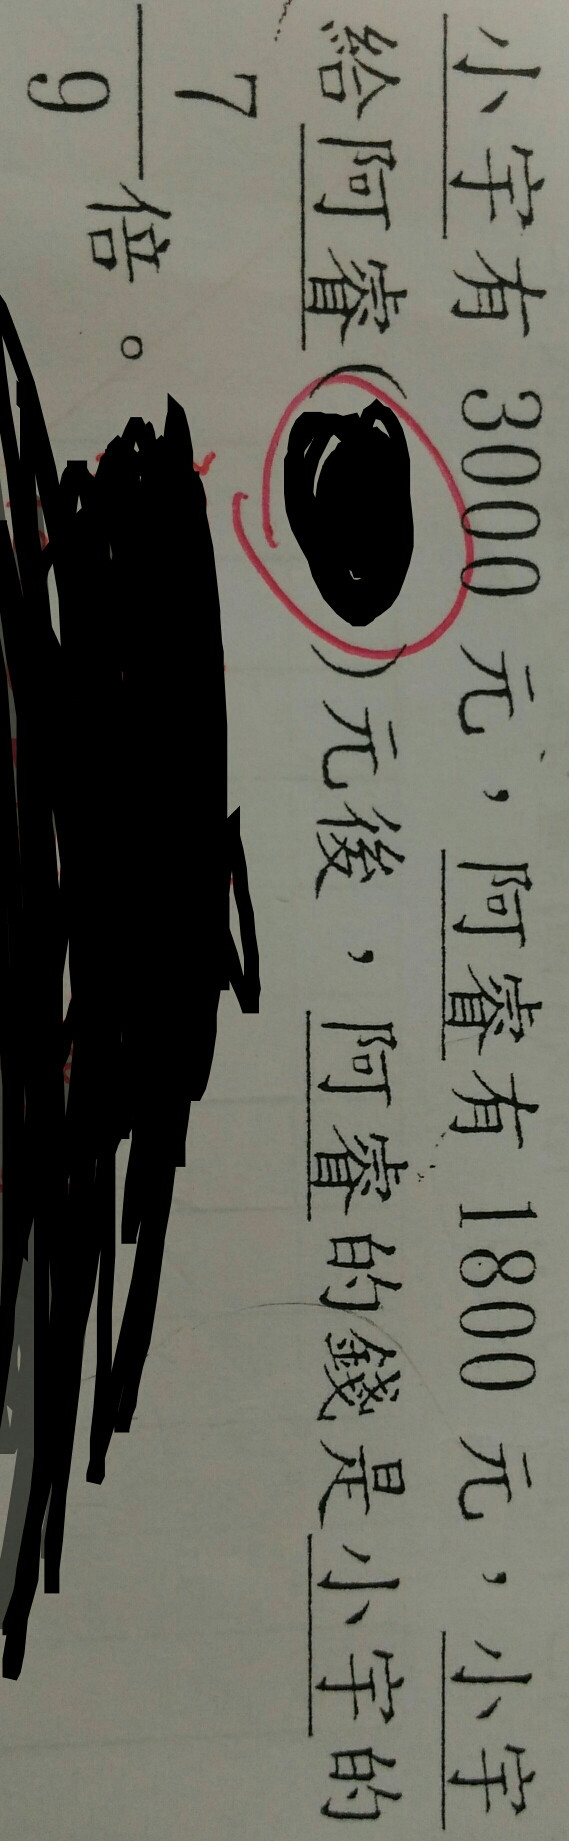 小宇有 3000 元，阿睿有 1800 元，小宇
給阿睿( )元後，阿睿的錢是小宇的
7/9 倍。